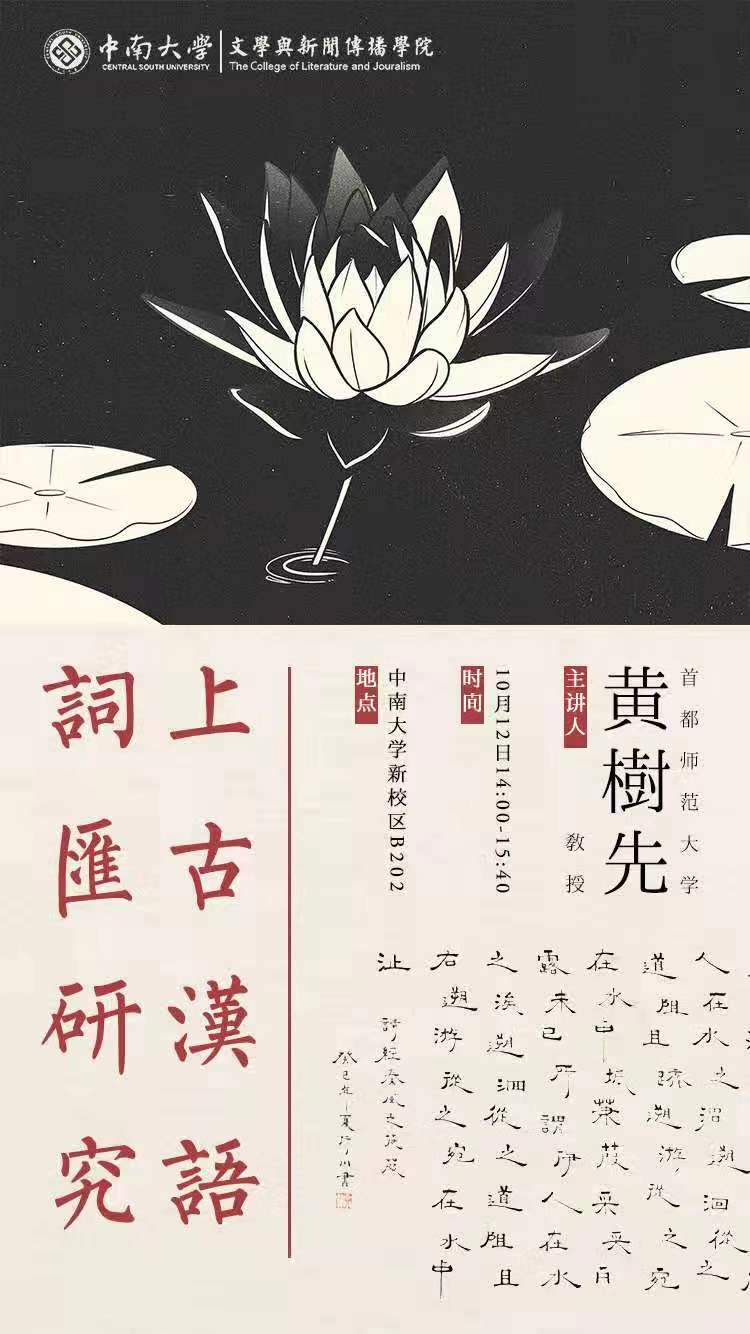 中南大学
CENTRAL SOUTH UNIVERSITY
文學與新聞傳播學院
The College of Literature and Jouralism
首都师范大学
黄樹先
主讲人
教授
时间
10月12日14:00-15:40
地点
中南大学新校区B202
上古漢語
詞匯研究
人在水之湄遡洄從之
道阻且躋遡游從之宛
在水中坻蒹葭采采白
露未已所謂伊人在水
之涘遡洄從之道阻且
右遡游從之宛在水中
沚
詩經秦風之蒹葭
癸巳年夏